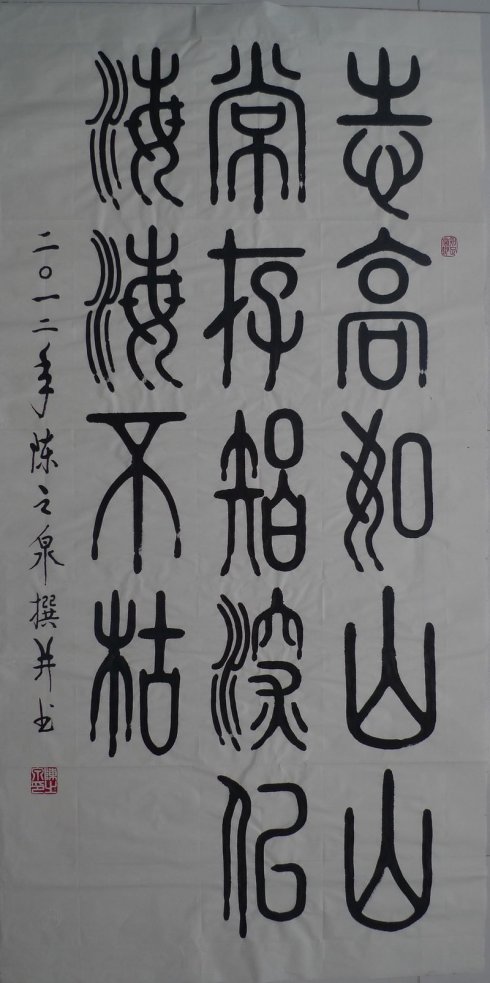 志高如山山
常存智深似
海海不枯
二〇一二年陈之泉撰并书